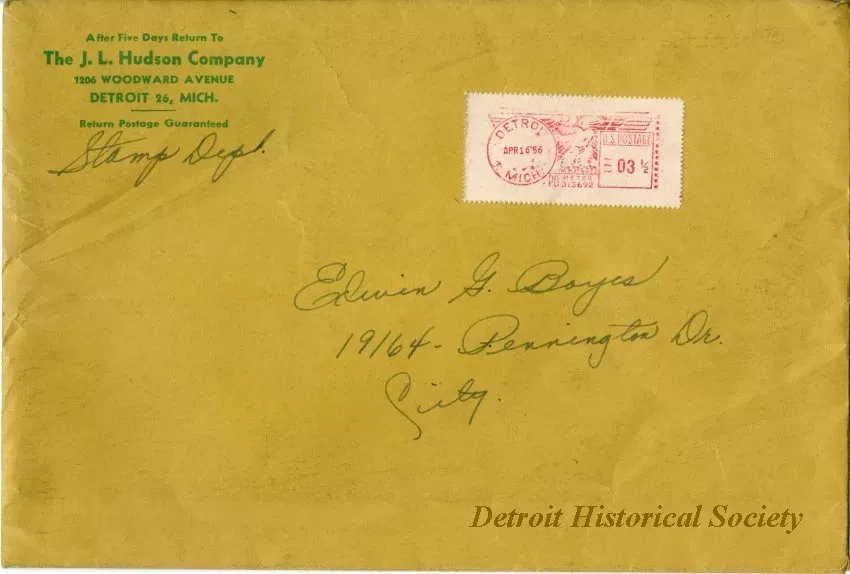 After Five Days Return To
The J. L. Hudson Company
1206 WOODWARD AVENUE
DETROIT 26, MICH.
Return Postage Guaranteed
Stamp Dept.
DETROIT
APR 16 '56
MICH.
U.S. POSTAGE
03 ½
P.B. METER
313692
Edwin G. Boyes
19164 - Pennington Dr.
City.
Detroit Historical Society